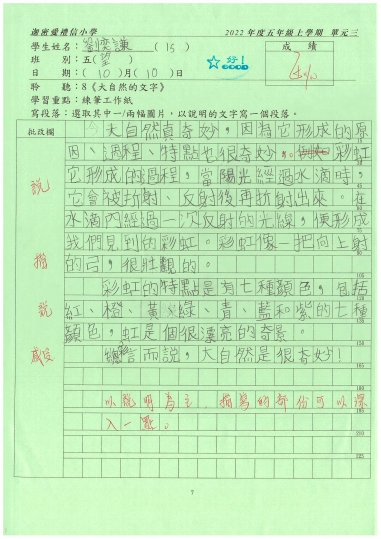 迦密愛禮信小學
2022年度五年級上學期 單元三
學生姓名：劉奕謙（15）
成績
班 別：五（望）
好！
日 期：（10）月（10）日
聆 聽：8《大自然的文字》
學習重點：練筆工作紙
寫段落：選取其中一/兩幅圖片，以說明的文字寫一個段落。
批改欄
大自然真奇妙，因為它形成的原
因、過程、特點也很奇妙。彩虹
它形成的過程，當陽光經過水滴時，
它會被折射、反射後再折射出來。在
水滴內經過一次反射的光線，便形成
我們見到的彩虹。彩虹像一把向上射
的弓，很壯觀的。
彩虹的特點是有七種顏色，包括
紅、橙、黃、綠、青、藍和紫的七種
顏色，虹是個很漂亮的奇景。
總言而說，大自然是很奇妙！
說
描
說
感受
以說明為主，描寫的部份可以深
入一點。
7